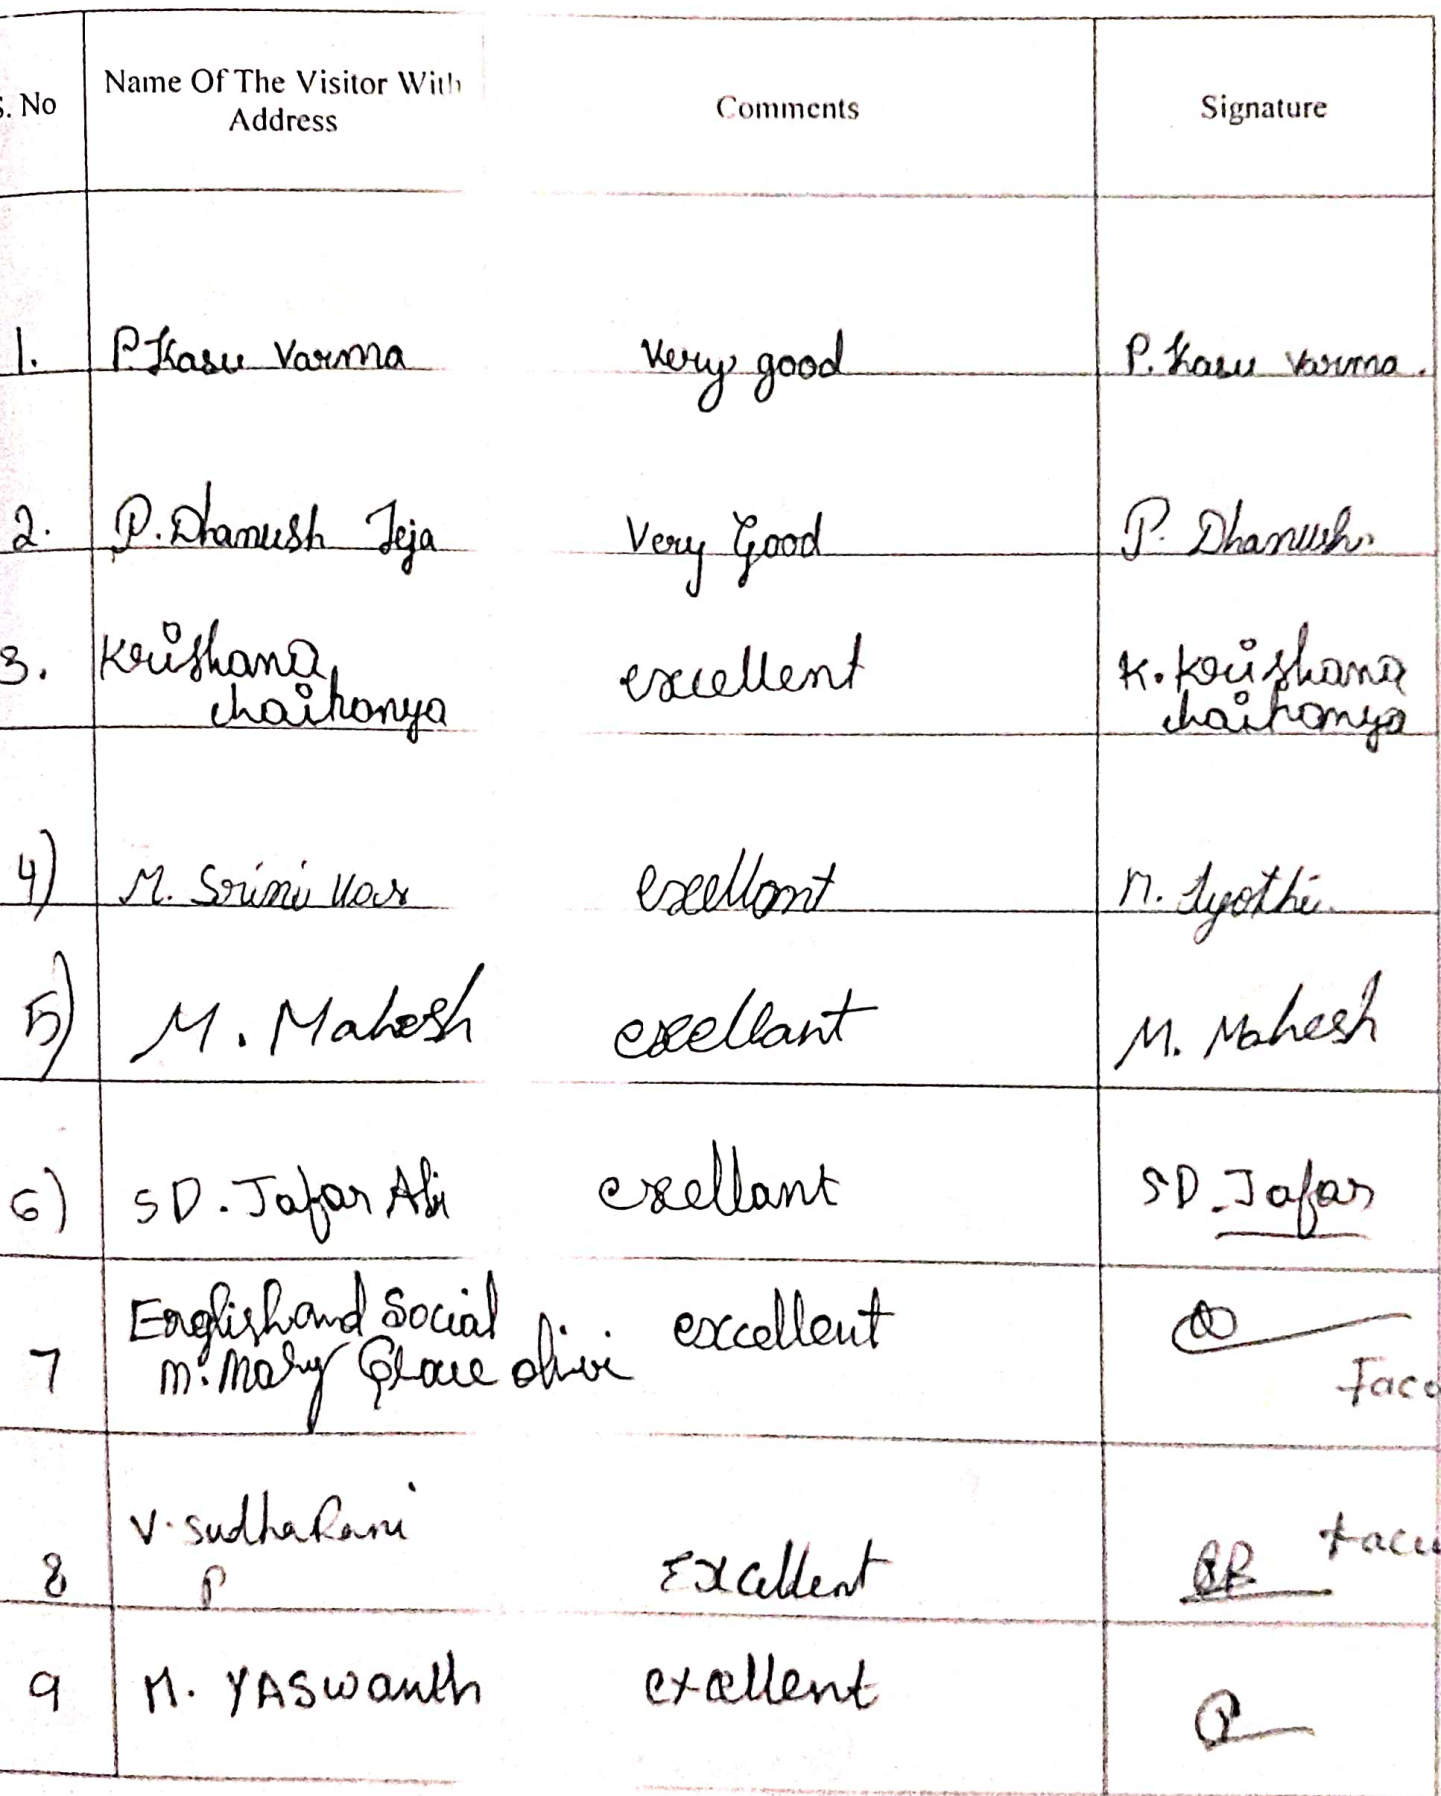 S. No Name Of The Visitor With Address Comments Signature
1. P. Kasu Varma Very good P. Kasu Varma.
2. P. Dhanush Teja Very Good P. Dhanush
3. Krishana chaitanya excellent K. Krishana chaitanya
4) M. Srinivas exellant M. Jyothi.
5) M. Mahesh exellant M. Mahesh
6) SD. Jafar Ali exellant SD. Jafar
7 English and Social excellent
M. Mary Grace olivi
8 V. Sudha Rani Excellent
P
9 M. YASwanth excellent